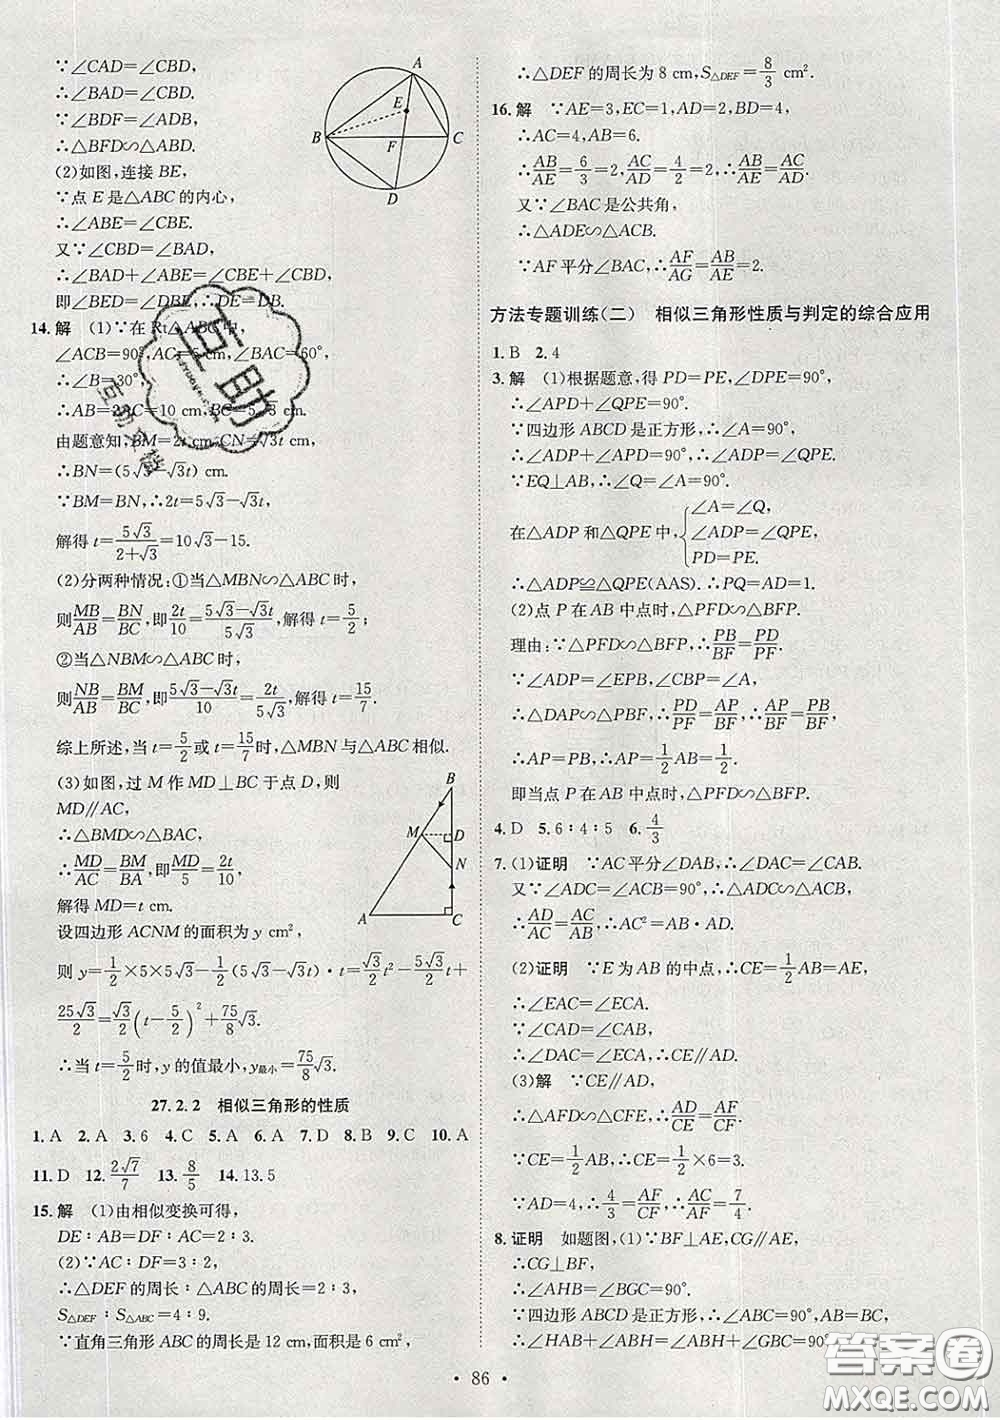 ∵∠CAD=∠CBD,
∴∠BAD=∠CBD.
∵∠BDF=∠ADB,
∴△BFD∽△ABD.
(2)如图,连接 BE,
∵点 E 是△ABC 的内心,
∴∠ABE=∠CBE.
又∵∠CBD=∠BAD,
∴∠BAD+∠ABE=∠CBE+∠CBD,
即∠BED=∠DBE,∴DE=DB.
A
E
B
F
C
D
14. 解 (1)∵在 Rt△ABC 中,
∠ACB=90°,AC=5,∠BAC=60°,
∴∠B=30°,
∴AB=2AC=10 cm,BC=5√3 cm.
由题意知,BM=2t cm,CN=√3t cm,
∴BN=(5√3-√3t) cm.
∵BM=BN,∴2t=5√3-√3t,
解得 t=5√3/(2+√3)=10√3-15.
(2)分两种情况:①当△MBN∽△ABC 时,
则MB/AB=BN/BC,即2t/10=(5√3-√3t)/5√3,解得 t=5/2;
②当△NBM∽△ABC 时,
则NB/AB=BM/BC,即(5√3-√3t)/10=2t/5√3,解得 t=15/7.
综上所述,当 t=5/2或 t=15/7时,△MBN 与△ABC 相似.
(3)如图,过 M 作 MD⊥BC 于点 D,则
MD∥AC,
∴△BMD∽△BAC,
∴MD/AC=BM/BA,即MD/5=2t/10,
解得 MD=t cm.
B
M
D
N
A
C
设四边形 ACNM 的面积为 y cm²,
则 y=1/2×5×5√3-1/2(5√3-√3t)·t=√3/2t²-5√3/2t+
25√3/2=√3/2(t-5/2)²+75/8√3.
∴当 t=5/2时,y 的值最小,y最小=75/8√3.
27.2.2 相似三角形的性质
1. A 2. A 3. 6 4. C 5. A 6. A 7. D 8. B 9. C 10. A
11. D 12. 2√7/7 13. 8/5 14. 13.5
15. 解 (1)由相似变换可得,
DE∶AB=DF∶AC=2∶3.
(2)∵AC∶DF=3∶2,
∴△DEF 的周长∶△ABC 的周长=2∶3,
S△DEF∶S△ABC=4∶9.
∵直角三角形 ABC 的周长是 12 cm,面积是 6 cm²,
∴△DEF 的周长为 8 cm,S△DEF=8/3 cm².
16. 解 ∵AE=3,EC=1,AD=2,BD=4,
∴AC=4,AB=6.
∴AB/AE=6/3=2,AC/AD=4/2=2,∴AB/AE=AC/AD.
又∵∠BAC 是公共角,
∴△ADE∽△ACB.
∵AF 平分∠BAC,∴AF/AG=AB/AE=2.
方法专题训练(二) 相似三角形性质与判定的综合应用
1. B 2. 4
3. 解 (1)根据题意,得 PD=PE,∠DPE=90°,
∴∠APD+∠QPE=90°.
∵四边形 ABCD 是正方形,∴∠A=90°,
∴∠ADP+∠APD=90°,∴∠ADP=∠QPE.
∵EQ⊥AB,∴∠Q=∠A=90°.
在△ADP 和△QPE 中,{∠A=∠Q,
∠ADP=∠QPE,
PD=PE.
∴△ADP≌△QPE(AAS).∴PQ=AD=1.
(2)点 P 在 AB 中点时,△PFD∽△BFP.
理由:∵△PFD∽△BFP,∴PB/BF=PD/PF.
∵∠ADP=∠EPB,∠CBP=∠A,
∴△DAP∽△PBF,∴PD/PF=AP/BF,∴AP/BF=PB/BF,
∴AP=PB,∴AP=1/2AB=1/2.
即当点 P 在 AB 中点时,△PFD∽△BFP.
4. D 5. 6∶4∶5 6. 4/3
7. (1)证明 ∵AC 平分∠DAB,∴∠DAC=∠CAB.
又∵∠ADC=∠ACB=90°,∴△ADC∽△ACB.
∴AD/AC=AC/AB,∴AC²=AB·AD.
(2)证明 ∵E 为 AB 的中点,∴CE=1/2AB=AE,
∴∠EAC=∠ECA.
∵∠CAD=∠CAB,
∴∠DAC=∠ECA,∴CE∥AD.
(3)解 ∵CE∥AD,
∴△AFD∽△CFE,∴AD/CE=AF/CF.
∵CE=1/2AB,∴CE=1/2×6=3.
∵AD=4,∴4/3=AF/CF,∴AC/AF=7/4.
8. 证明 如题图,(1)∵BF⊥AE,CG∥AE,
∴CG⊥BF,
∴∠AHB=∠BGC=90°.
∵四边形 ABCD 是正方形,∴∠ABC=90°,AB=BC,
∴∠HAB+∠ABH=∠ABH+∠GBC=90°,
• 86 •
互助
互助文档
答案圈
MXQE.COM